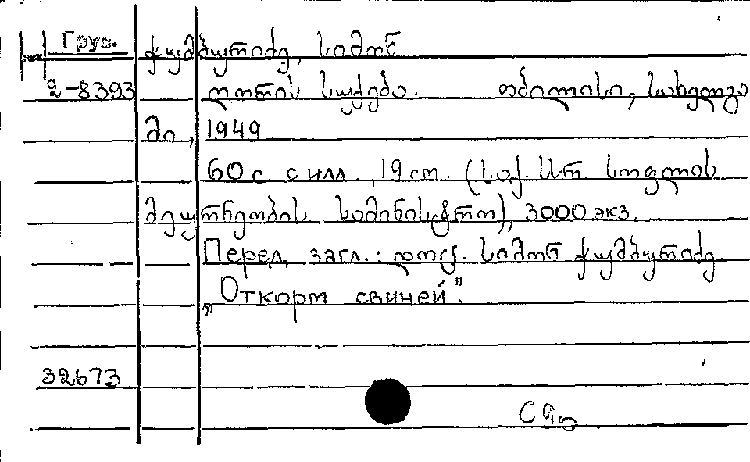 Груз. ქუმბურიძე, სიმონ
2-8393 ღორის სუქება. თბილისი, სახელგა
მი, 1949
60 с. с илл., 19 см. (საქ. სსრ სოფლის
მეურნეობის სამინისტრო), 3000 экз.
Перед. загл.: დოც. სიმონ ქუმბურიძე.
„Откорм свиней".
32673